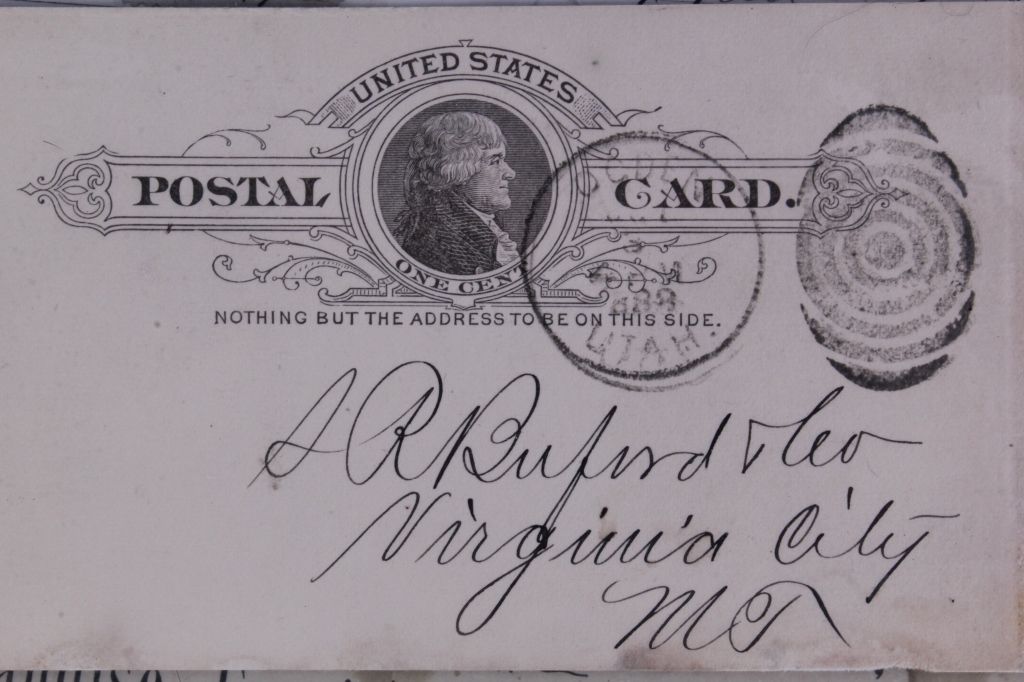 UNITED STATES
POSTAL CARD.
ONE CENT
NOTHING BUT THE ADDRESS TO BE ON THIS SIDE.
OGDEN
UTAH.
S R Buford & Co
Virginia City
MT